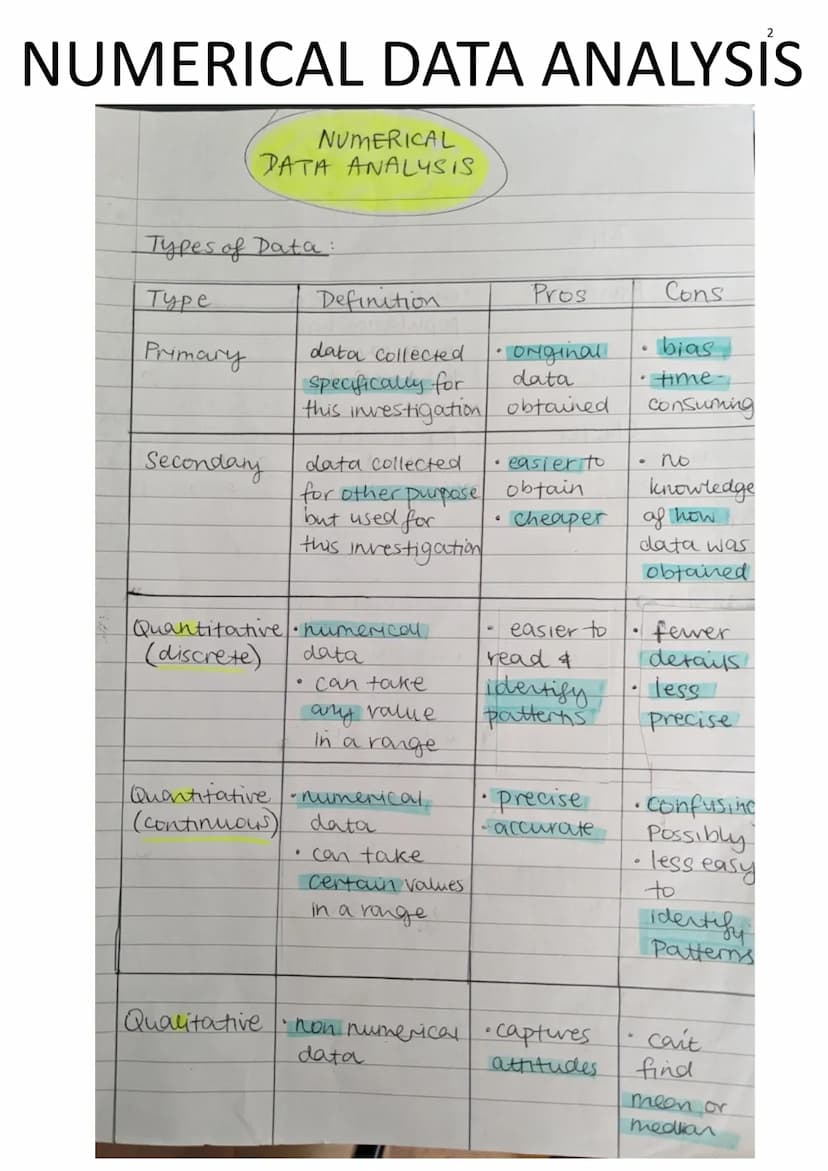 2
NUMERICAL DATA ANALYSIS
NUMERICAL
DATA ANALYSIS
Types of Data:
Type Definition Pros Cons
Primary data collected specifically for this investigation • original data obtained • bias • time- consuming
Secondary data collected for other purpose but used for this investigation • easier to obtain • cheaper • no knowledge of how data was obtained
Quantitative (discrete) • numerical data • can take any value in a range - easier to read & identify patterns • fewer details • less precise
Quantitative (continuous) • numerical data • can take certain values in a range • precise - accurate • confusing possibly • less easy to identify patterns
Qualitative • non numerical data • captures attitudes • can't find mean or median